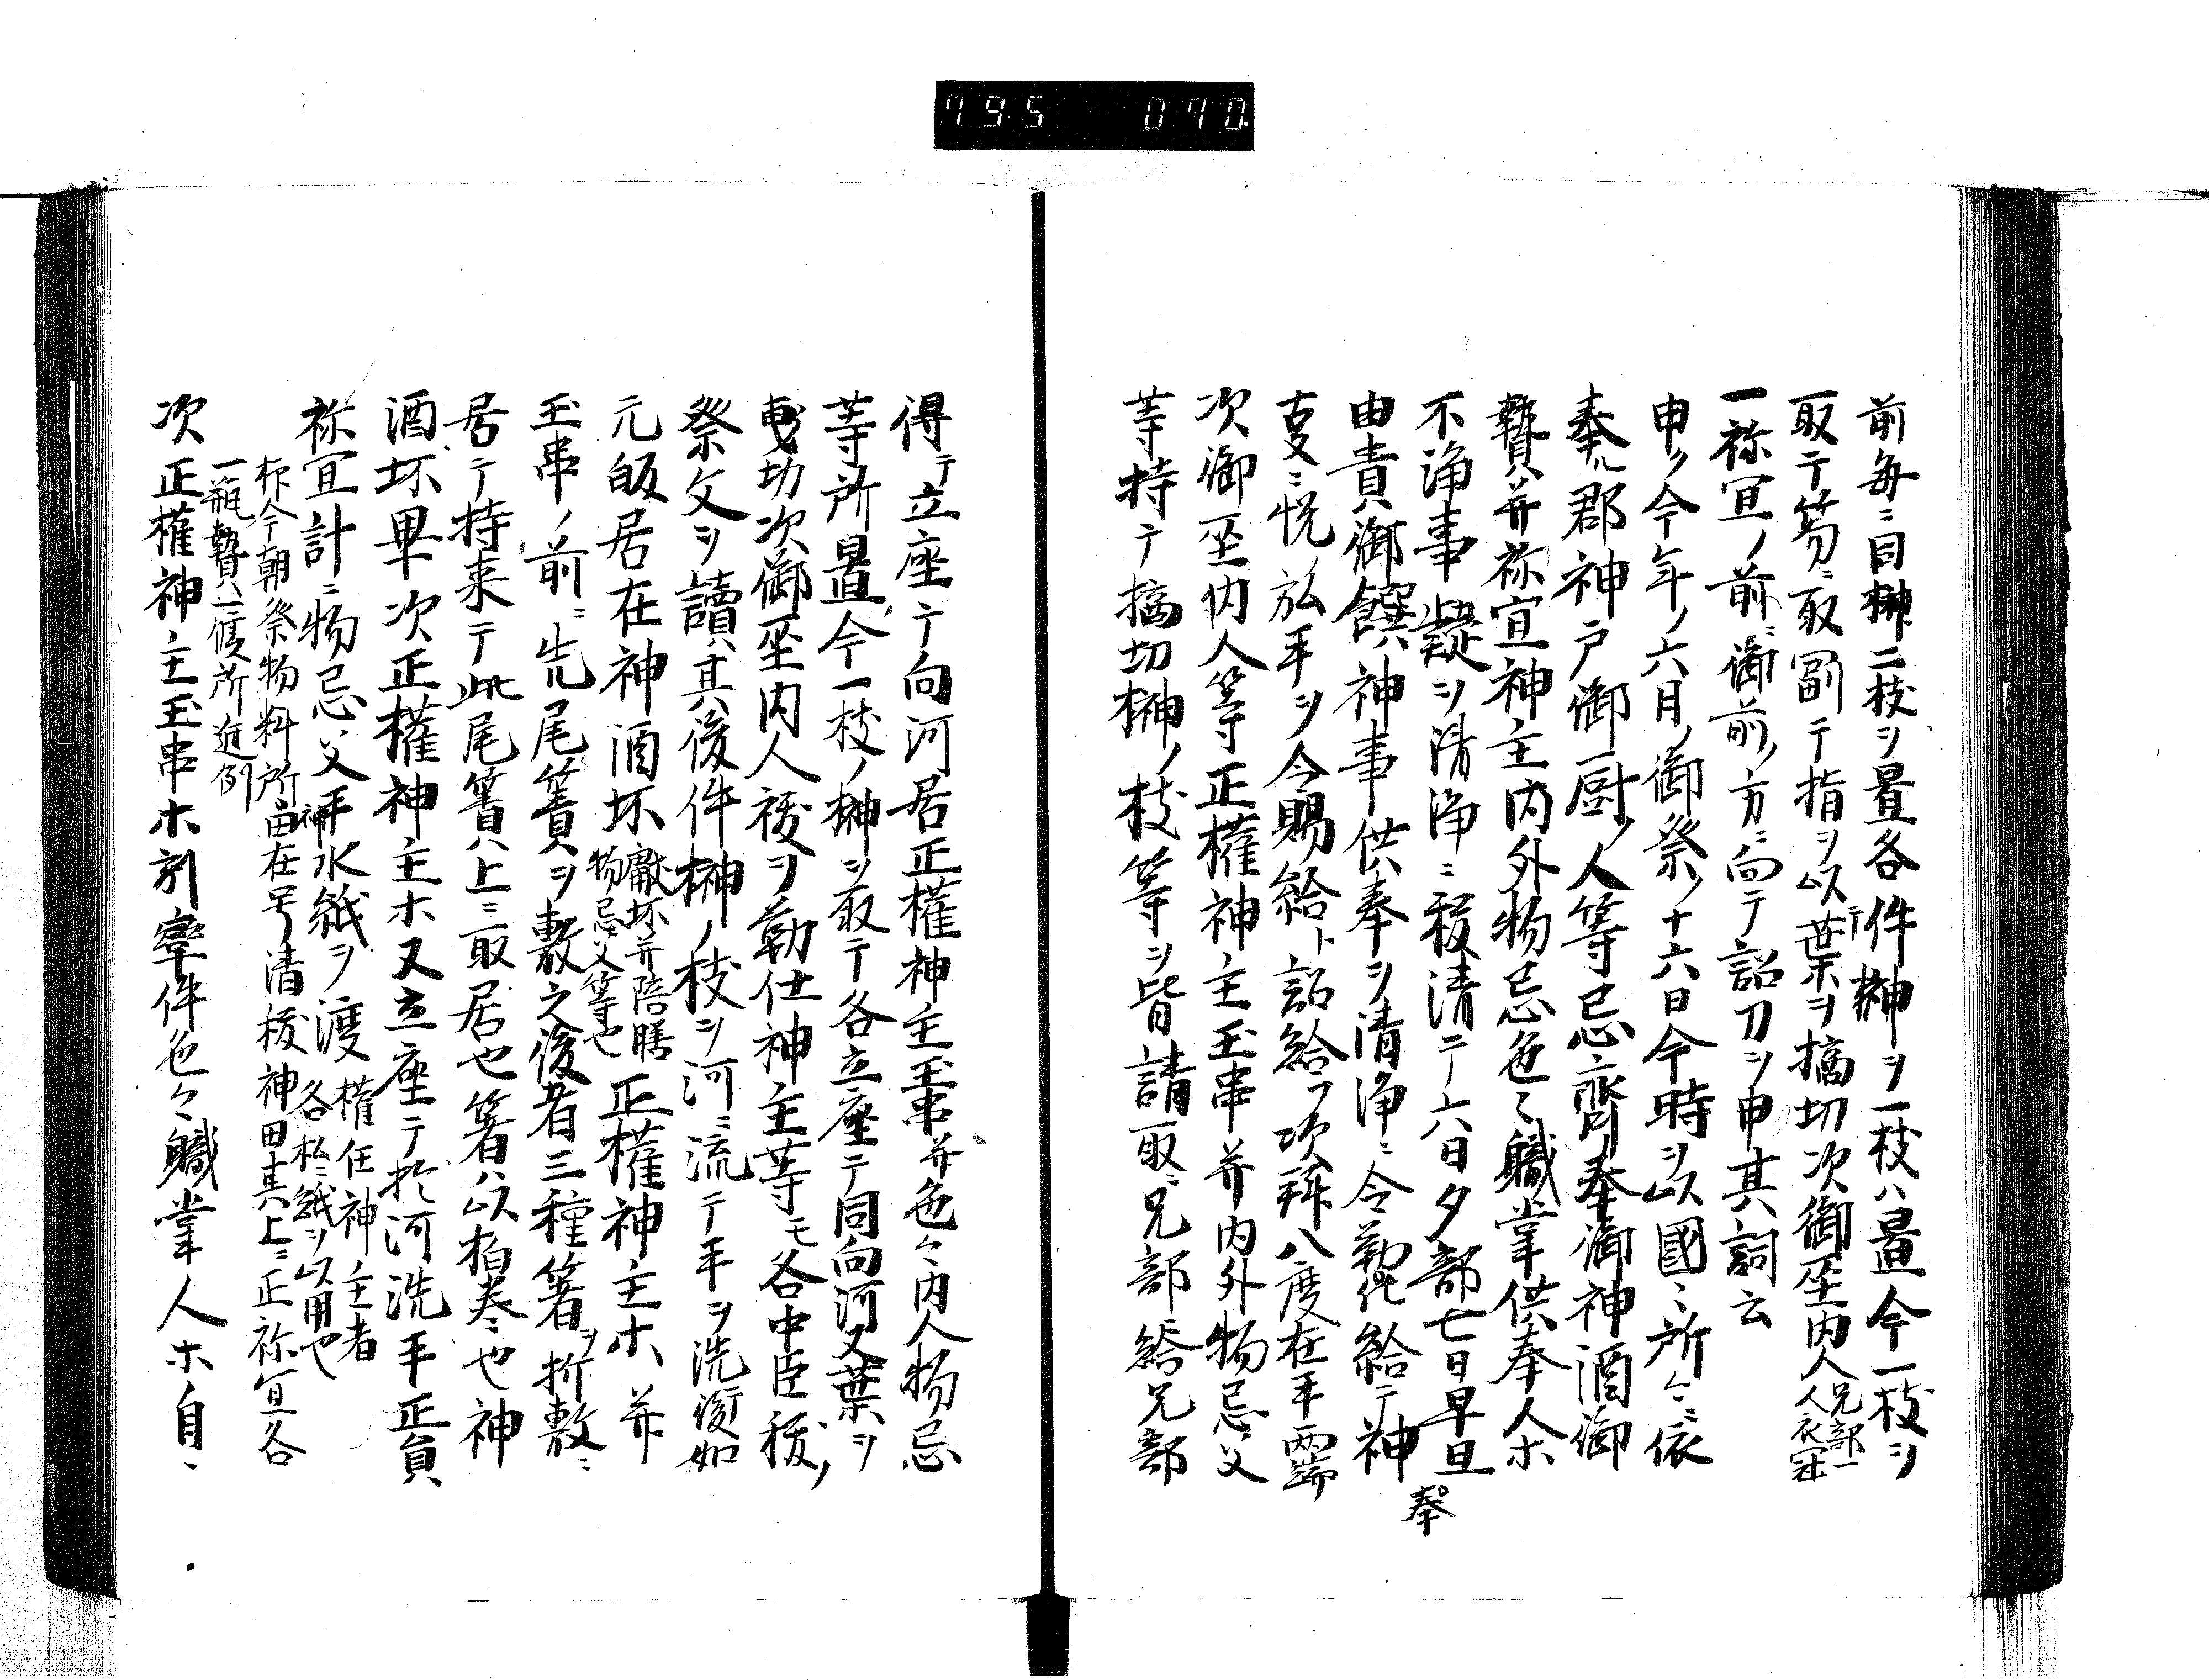 795 070
前毎ニ自榊二枝ヲ置各件榊ヲ一枝ハ置今一枝ヲ
取テ笏ニ取副テ指ヲ以テ葉ヲ摘切次御巫内人兄部一人衣冠
一祢宜ノ前ニ御前ノ方ニ向テ詔刀ヲ申其詞云
申ク今年ノ六月ノ御祭ノ十六日今時ヲ以國ニ所々ニ依
奉ル郡神戸御厨ノ人等忌齊奉御神酒御
贄并祢宜神主内外物忌色々職掌供奉人ホ
不浄事疑ヲ清浄ニ祓清テ六日夕部七日早旦
奉
由貴御饌神事供奉ヲ清浄ニ令勤仕給テ神
事ニ悦ノ弘手ヲ令賜給ト詔給フ次拜八度在手両端
次御巫内人等正權神主玉串并内外物忌父
等持テ摘切榊ノ枝等ヲ皆請取兄部給兄部
得テ立座テ向河居正權神主玉串并色々内人物忌
等所置今一枝ノ榊ヲ取テ各立座テ同向河又葉ヲ
曳切次御巫内人祓ヲ勤仕神主等モ各中臣祓ノ
祭文ヲ讀其後件榊ノ枝ヲ河ニ流テ手ヲ洗漱如
元皈居在神酒坏獻坏并陪膳物忌父等也正權神主ホ并
玉串ノ前ニ先尾簀ヲ敷之後者三種箸ヲ折敷ニ
居テ持来テ此尾簀ハ上ニ取居也箸ハ以柏巻之也神
酒坏畢次正權神主ホ又立座テ於河洗手正員
祢宜計ニ物忌父神手水紙ヲ渡權任神主者各私ニ紙ヲ以用也
抑今朝祭物料所由在号清祓神田其上ニ正祢宜各
一瓶贄ハ一度所進例
次正權神主玉串ホ引率件色々職掌人ホ自ニ